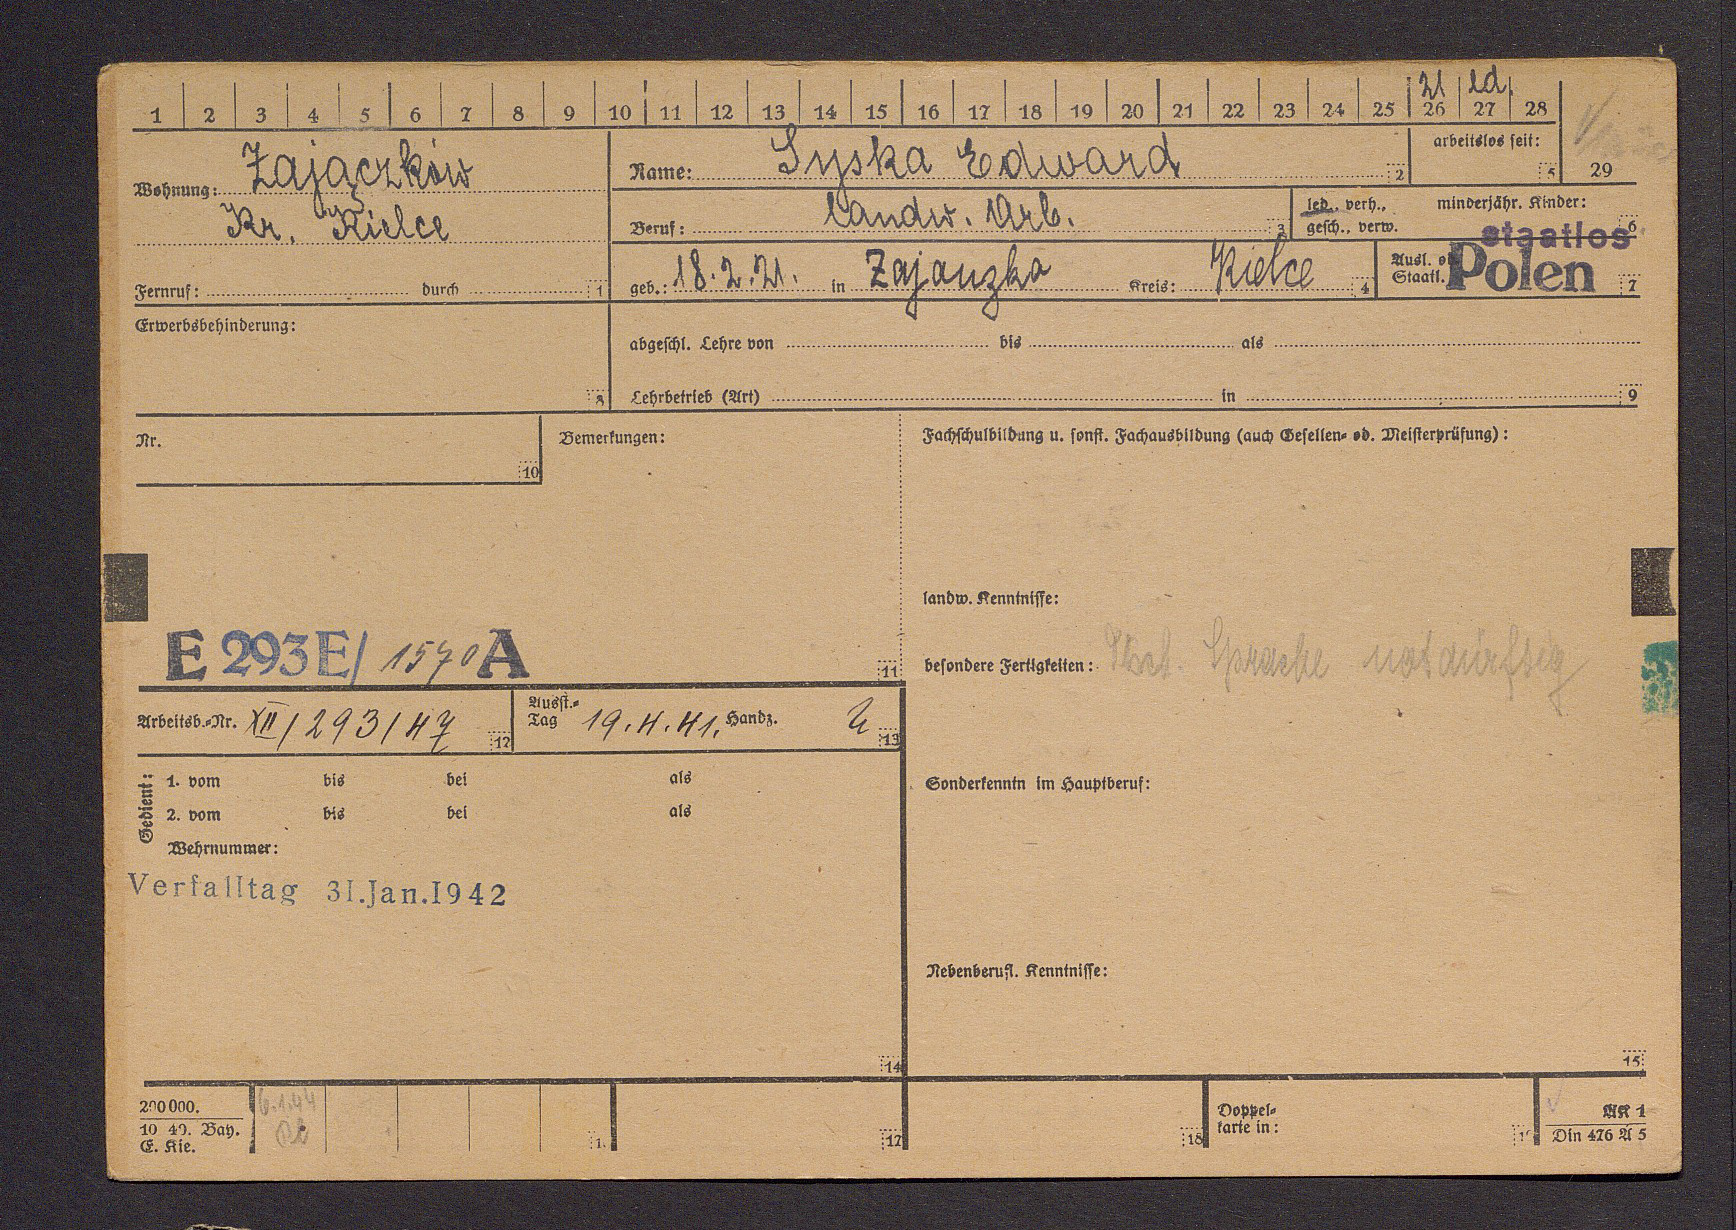 21 led.
1 2 3 4 5 6 7 8 9 10 11 12 13 14 15 16 17 18 19 20 21 22 23 24 25 26 27 28
29
Wohnung: Zajączków
Kr. Kielce
Fernruf: durch 1
Name: Syska Edward 2
arbeitslos seit: 5
Beruf: landw. Arb. 3
led., verh.,
gesch., verw.
minderjähr. Kinder: 6
geb.: 18.2.21. in Zajanzka Kreis: Kielce 4
Ausl. od.
Staatl.
staatlos
Polen 7
Erwerbsbehinderung: 8
abgeschl. Lehre von bis als
Lehrbetrieb (Art) in 9
Nr. 10
Bemerkungen:
Fachschulbildung u. sonst. Fachausbildung (auch Gesellen- od. Meisterprüfung):
landw. Kenntnisse:
besondere Fertigkeiten: Sprache notdürftig
E 293 E/ 1570 A 11
Arbeitsb.-Nr. XII/293/47 12
Ausst.-
Tag 19.4.41. Handz. 13
Gedient:
1. vom bis bei als
2. vom bis bei als
Wehrnummer:
Verfalltag 31.Jan.1942
Sonderkenntn im Hauptberuf:
Nebenberufl. Kenntnisse:
14
15
200000.
10 40. Bay.
E. Kie.
6.1.44
17
18
Doppel-
karte in:
AK 1
Din 476 A 5